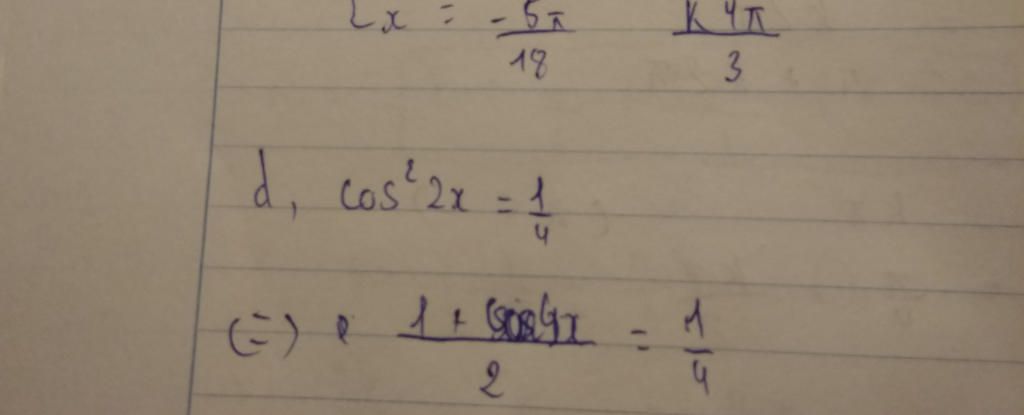 x = -5π/18 k4π/3
d, cos²2x = 1/4
(=) (1 + cos4x)/2 = 1/4